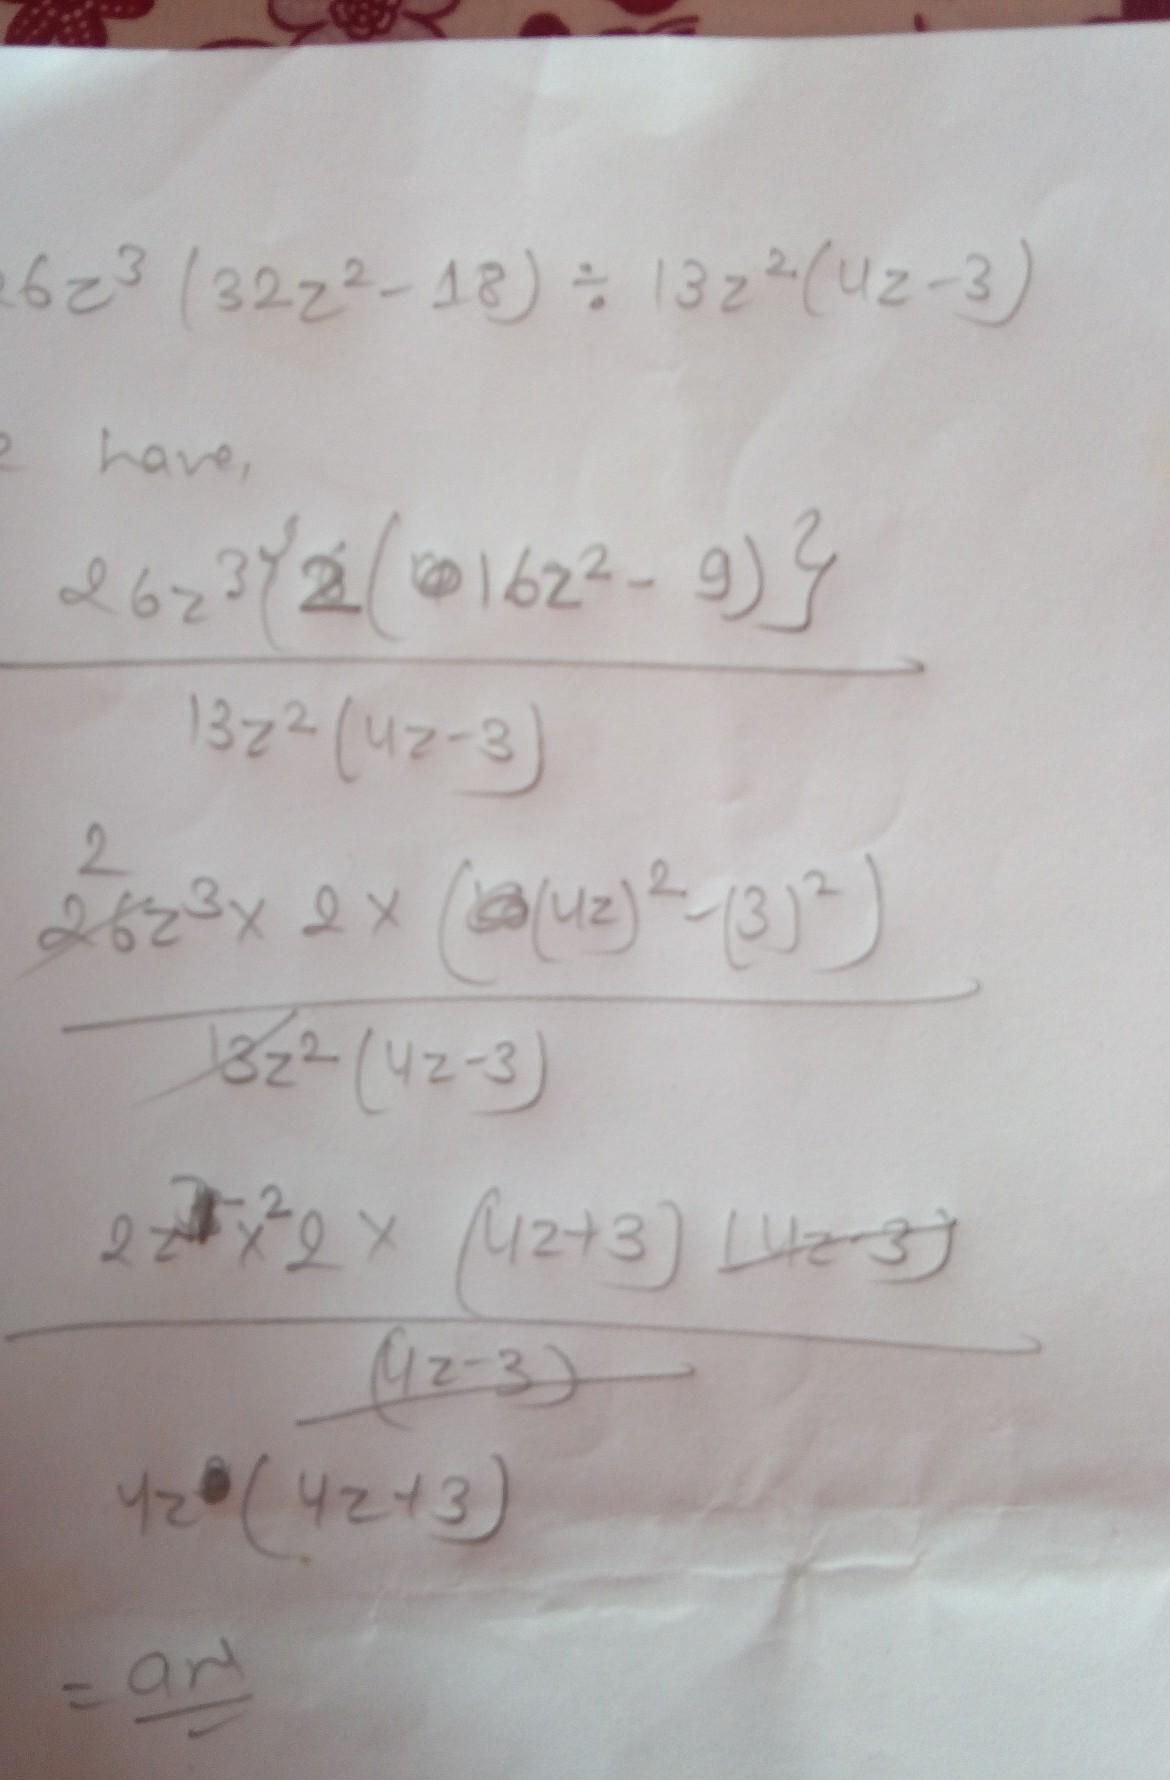 26z³ (32z² - 18) ÷ 13z² (4z - 3)
have,
26z³ {2 (16z² - 9)}
13z² (4z - 3)
2
26z³ × 2 × ((4z)² - (3)²)
13z² (4z - 3)
2z × 2 × (4z + 3) (4z - 3)
(4z - 3)
4z (4z + 3)
= ans